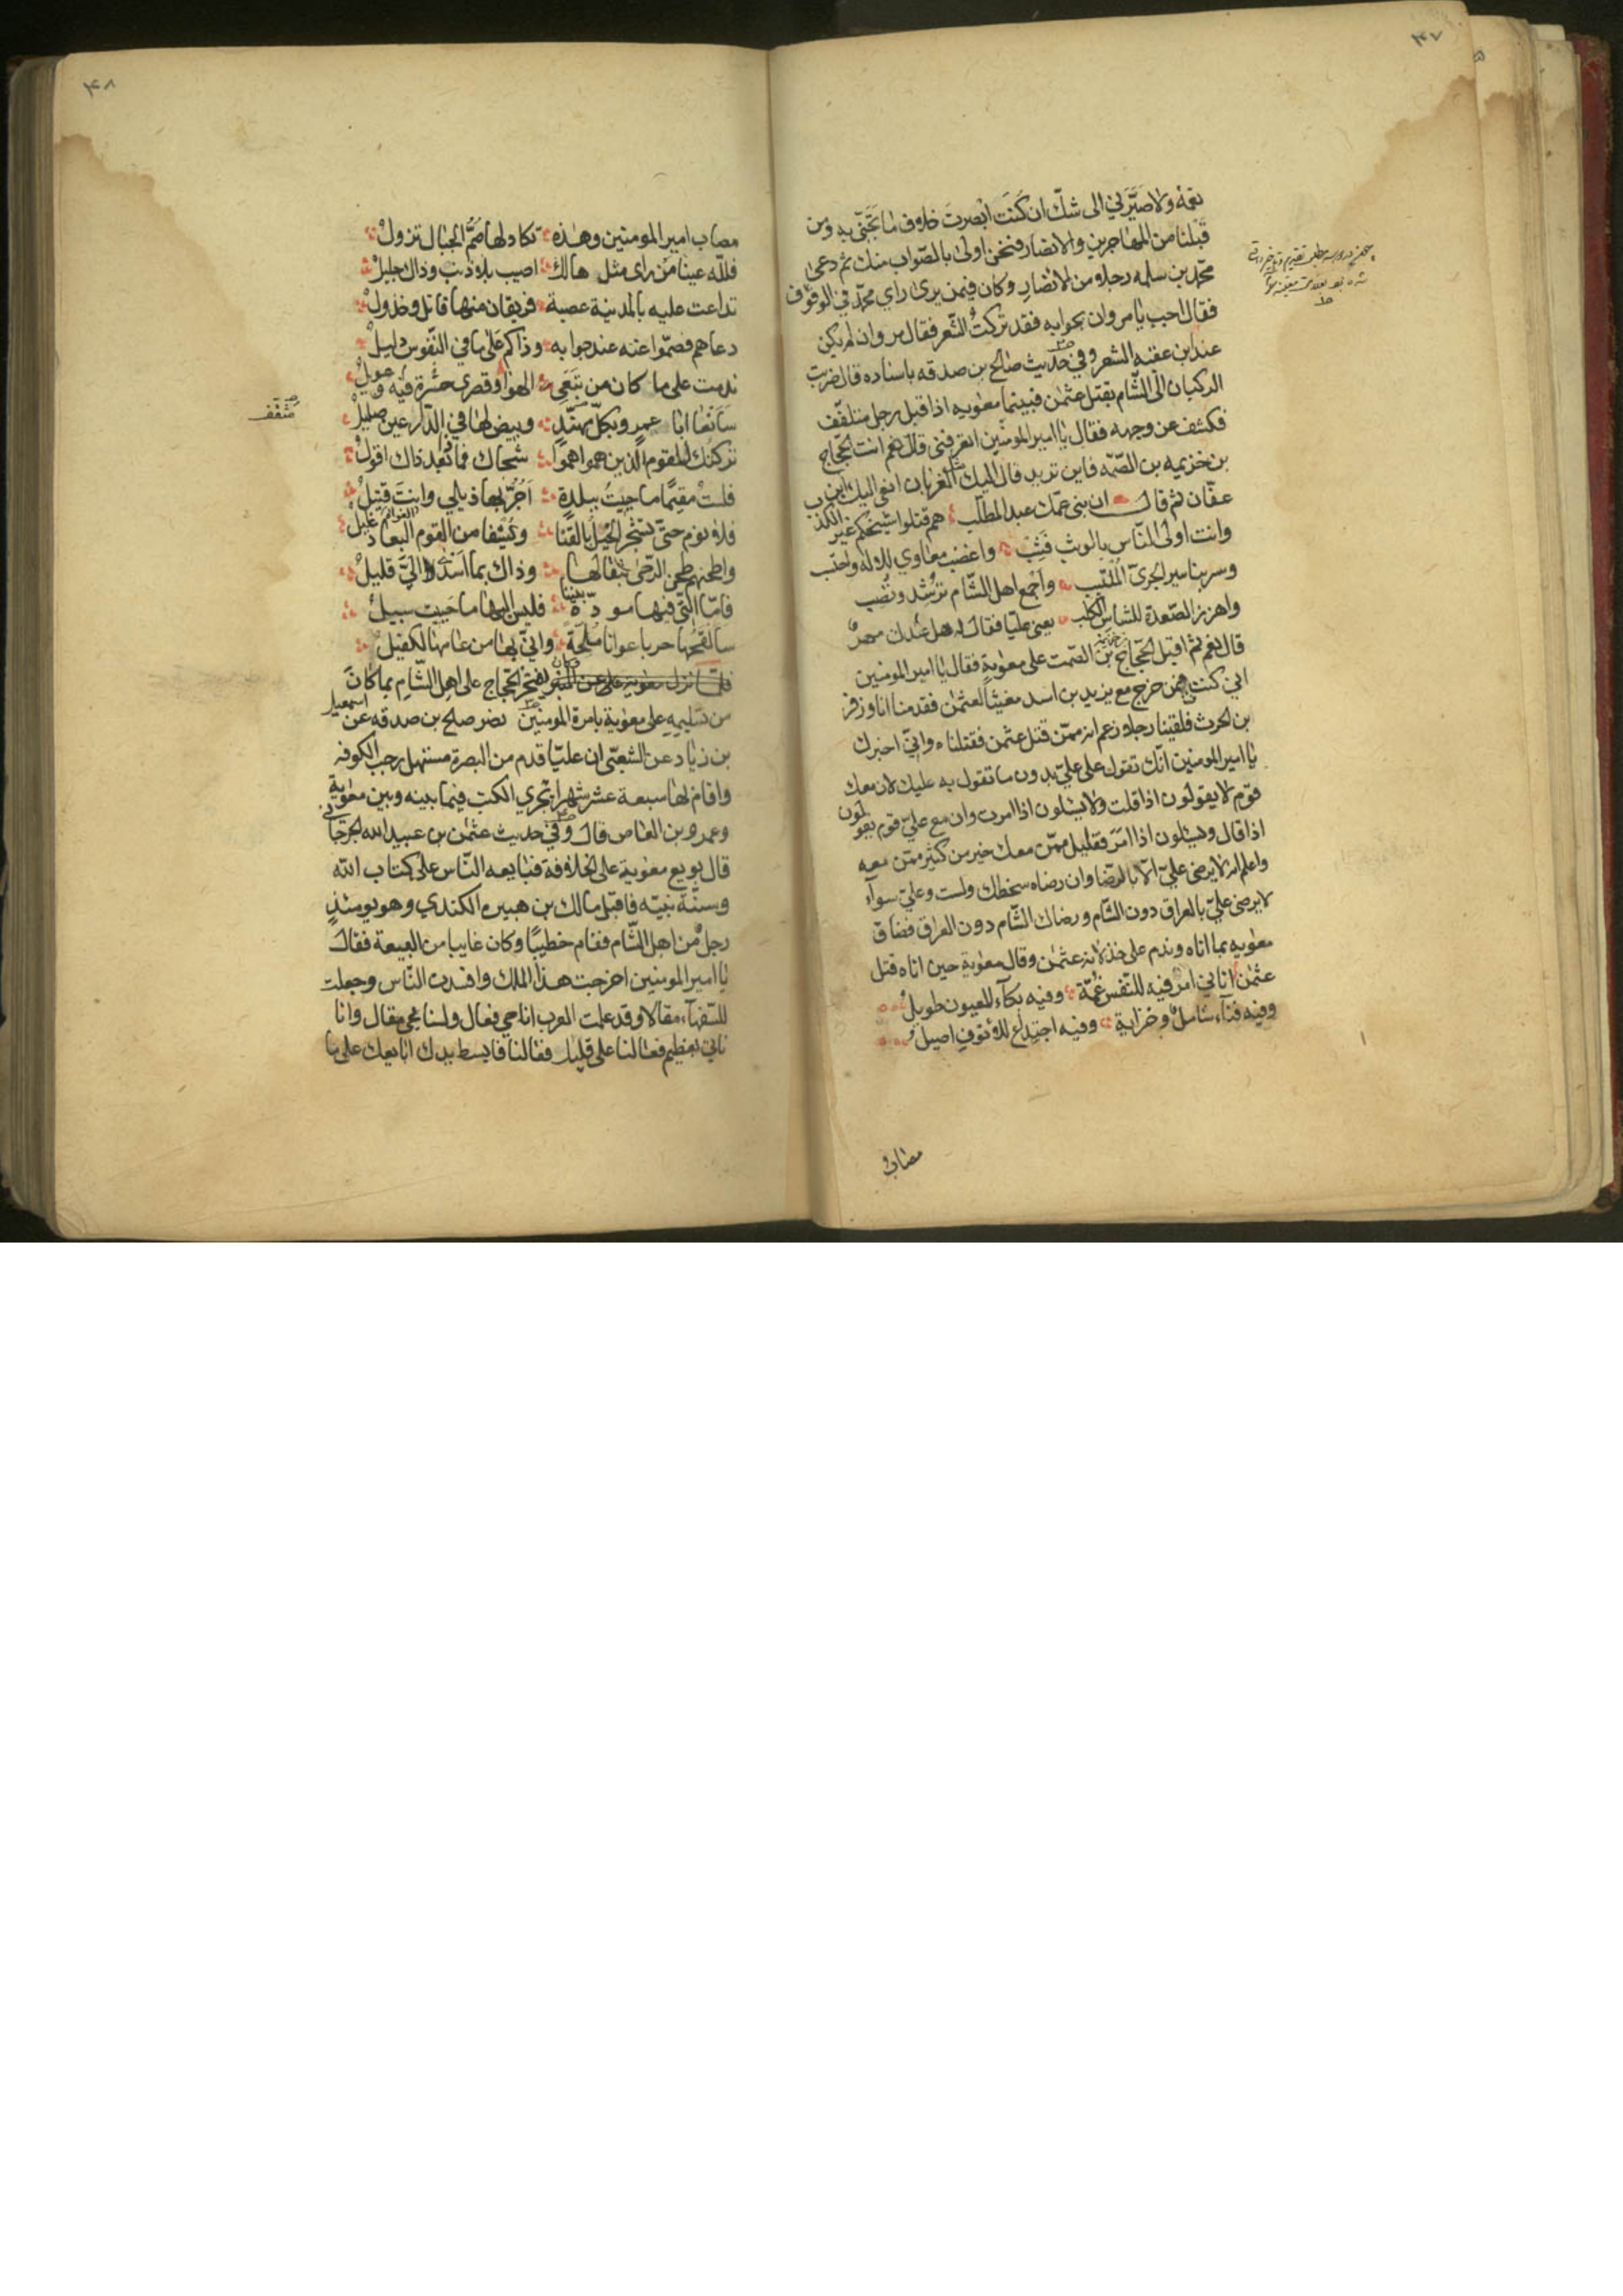 ٤٧
نعمة ولا صيّرني الى شكّ ان كنت ابصرت خلاف ما تحبّنى به ومن
قبلنا من المهاجرين والانصار فنحن اولى بالصّواب منك ثم دعى
محمّد بن سلمه رجلا من الانصار وكان فيمن يرى راي محمّد في الوقوف
فقال احب يا مروان بجوابه فقد تركت الشّعر فقال مروان لم يكن
عند ابن عقبه الشعر وفي حديث صالح بن صدقه باسناده قال ضربت
الركبان الى الشّام بقتل عثمٰن فبينما معٰويه اذا قبل رجل متلفّف
فكشف عن وجهه فقال يا امير المومنين اتعرفنى قال نعم انت الحجّاج
بن خزيمه بن الصّمّه فاين تريد قال اليك القربان انعى اليك ابن
عفّان ثم قال ان بنى عمّك عبد المطلّب هم قتلوا شيخكم غير الكذب
وانت اولى النّاس بالوثب فثب واغضب معاوي للاله واحتسب
وسر بنا سير الجرىّ المتلئب واجمع اهل الشّام ترشد وتصب
واهزز الصّعدة للشاس الكلب يعنى عليّا فقال له هل عندك مهر
قال نعم ثم اقبل الحجّاج بن الصّمت على معٰوية فقال يا امير المومنين
اني كنت فيمن خرج مع يزيد بن اسد مغيثا لعثمٰن فقدمنا انا وزفر
بن الحرث فلقينا رجلا زعم انه ممّن قتل عثمٰن فقتلناه وانيّ اخبرك
يا امير المومنين انّك تقوى على عليّ بدون ما تقوى به عليك لان معك
قوم لا يقولون اذا قلت ولا يسئلون اذا امرت وان مع عليّ قوم يقولون
اذا قال ويسئلون اذا امر فقليل ممّن معك خير من كثير ممّن معه
واعلم انه لا يرضى عليّ الّا بالرّضا وان رضاه سخطك ولست وعليّ سوآء
لا يرضى عليّ بالعراق دون الشّام ورضاك الشّام دون العراق فضاق
معٰويه بما اتاه وندم على خذلانه عثمٰن وقال معٰوية حين اتاه قتل
عثمٰن اتاني امر فيه للنّفس غمّة وفيه بكآء للعيون طويل
وفيه فنآء شامل وخزاية وفيه اجتداع للانوف اصيل
مصاب
٤٨
مصاب امير المومنين وهٰذه تكاد لها صمّ الجبال تزول
فللّه عينا من راى مثل هالك اصيب بلا ذنب وذاك جليل
تداعت عليه بالمدينة عصبة فريقان منها قاتل وخذول
دعاهم فصمّوا عنه عند جوابه وذاكم على ما في النّفوس دليل
ندمت على ما كان من تبعي الهوا وقصرى حسرة فيه وعويل
سانعا ابا عمرو بكلّ مهنّد وبيض لها في الدّارعين صليل
مثقف
تركتك للقوم الّذين هموا هموا شجاك فما ذا بعد ذاك اقول
فلست مقيما ما حييت ببلدة اجرّ بها ذيلي وانت قتيل
فلا نوم حتّى تشجر الخيل بالقنا ويشفا من القوم الغواة غليل
واطحنهم طحن الرحى بثقالها وذاك بما اسدوا اليّ قليل
فامّا الّتي فيها مودّة بيننا فليس اليها ما حييت سبيل
سالقحها حربا عوانا ملحّة وانيّ بها من عامنا لكفيل
وكان يفتخر الحجّاج على اهل الشّام بما كان
من تسليمه على معٰوية بامرة المومنين نصر صلح بن صدقه عن اسمعيل
بن زياد عن الشعبّى ان عليّا قدم من البصرة مستهل رجب الكوفه
واقام لها سبعة عشر شهرا تجري الكتب فيما بينه وبين معٰوية
وعمرو بن العاص قال وفي حديث عثمٰن بن عبيد الله الجرجاني
قال بويع معٰوية على الخلافة فبايعه النّاس على كتاب الله
وسنّة نبيّه فاقبل مالك بن هبيره الكندي وهو يومئذ
رجل من اهل الشّام فقام خطيبا وكان غايبا من البيعة فقال
يا امير المومنين اخرجت هذا الملك وافسدت النّاس وجعلت
للسّفهآء مقالا وقد علمت العرب انا حي فعال ولسنا بحي مقال وانا
ناتي بعظيم فعالنا على قليل مقالنا فابسط يدك ابايعك على ما